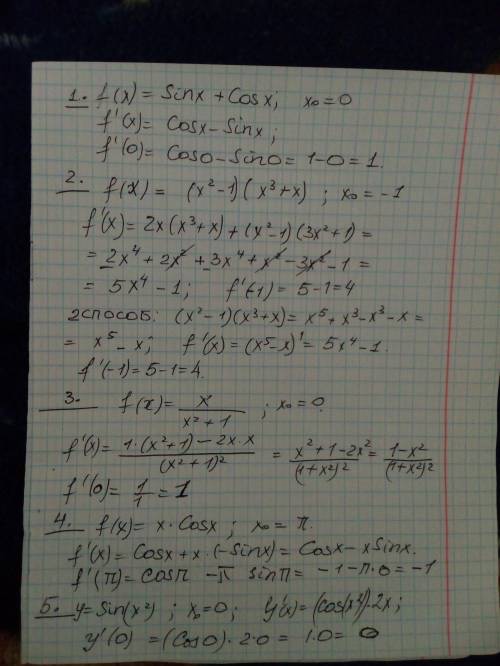 1. f(x) = Sinx + Cosx; x₀ = 0
f'(x) = Cosx - Sinx;
f'(0) = Cos0 - Sin0 = 1-0 = 1.
2. f(x) = (x²-1)(x³+x); x₀ = -1
f'(x) = 2x(x³+x) + (x²-1)(3x²+1) =
= 2x⁴ + 2x² + 3x⁴ + x² - 3x² - 1 =
= 5x⁴ - 1; f'(-1) = 5-1 = 4
2 способ: (x²-1)(x³+x) = x⁵ + x³ - x³ - x =
= x⁵ - x; f'(x) = (x⁵-x)' = 5x⁴ - 1.
f'(-1) = 5-1 = 4.
3. f(x) = x/(x²+1); x₀ = 0.
f'(x) = (1·(x²+1) - 2x·x)/(x²+1)² = (x²+1-2x²)/(1+x²)² = (1-x²)/(1+x²)²
f'(0) = 1/1 = 1
4. f(x) = x·Cosx; x₀ = π.
f'(x) = Cosx + x·(-Sinx) = Cosx - xSinx.
f'(π) = cosπ - π sinπ = -1 - π·0 = -1
5. y = Sin(x²); x₀ = 0; y'(x) = (cos(x²))·2x;
y'(0) = (Cos0)·2·0 = 1·0 = 0